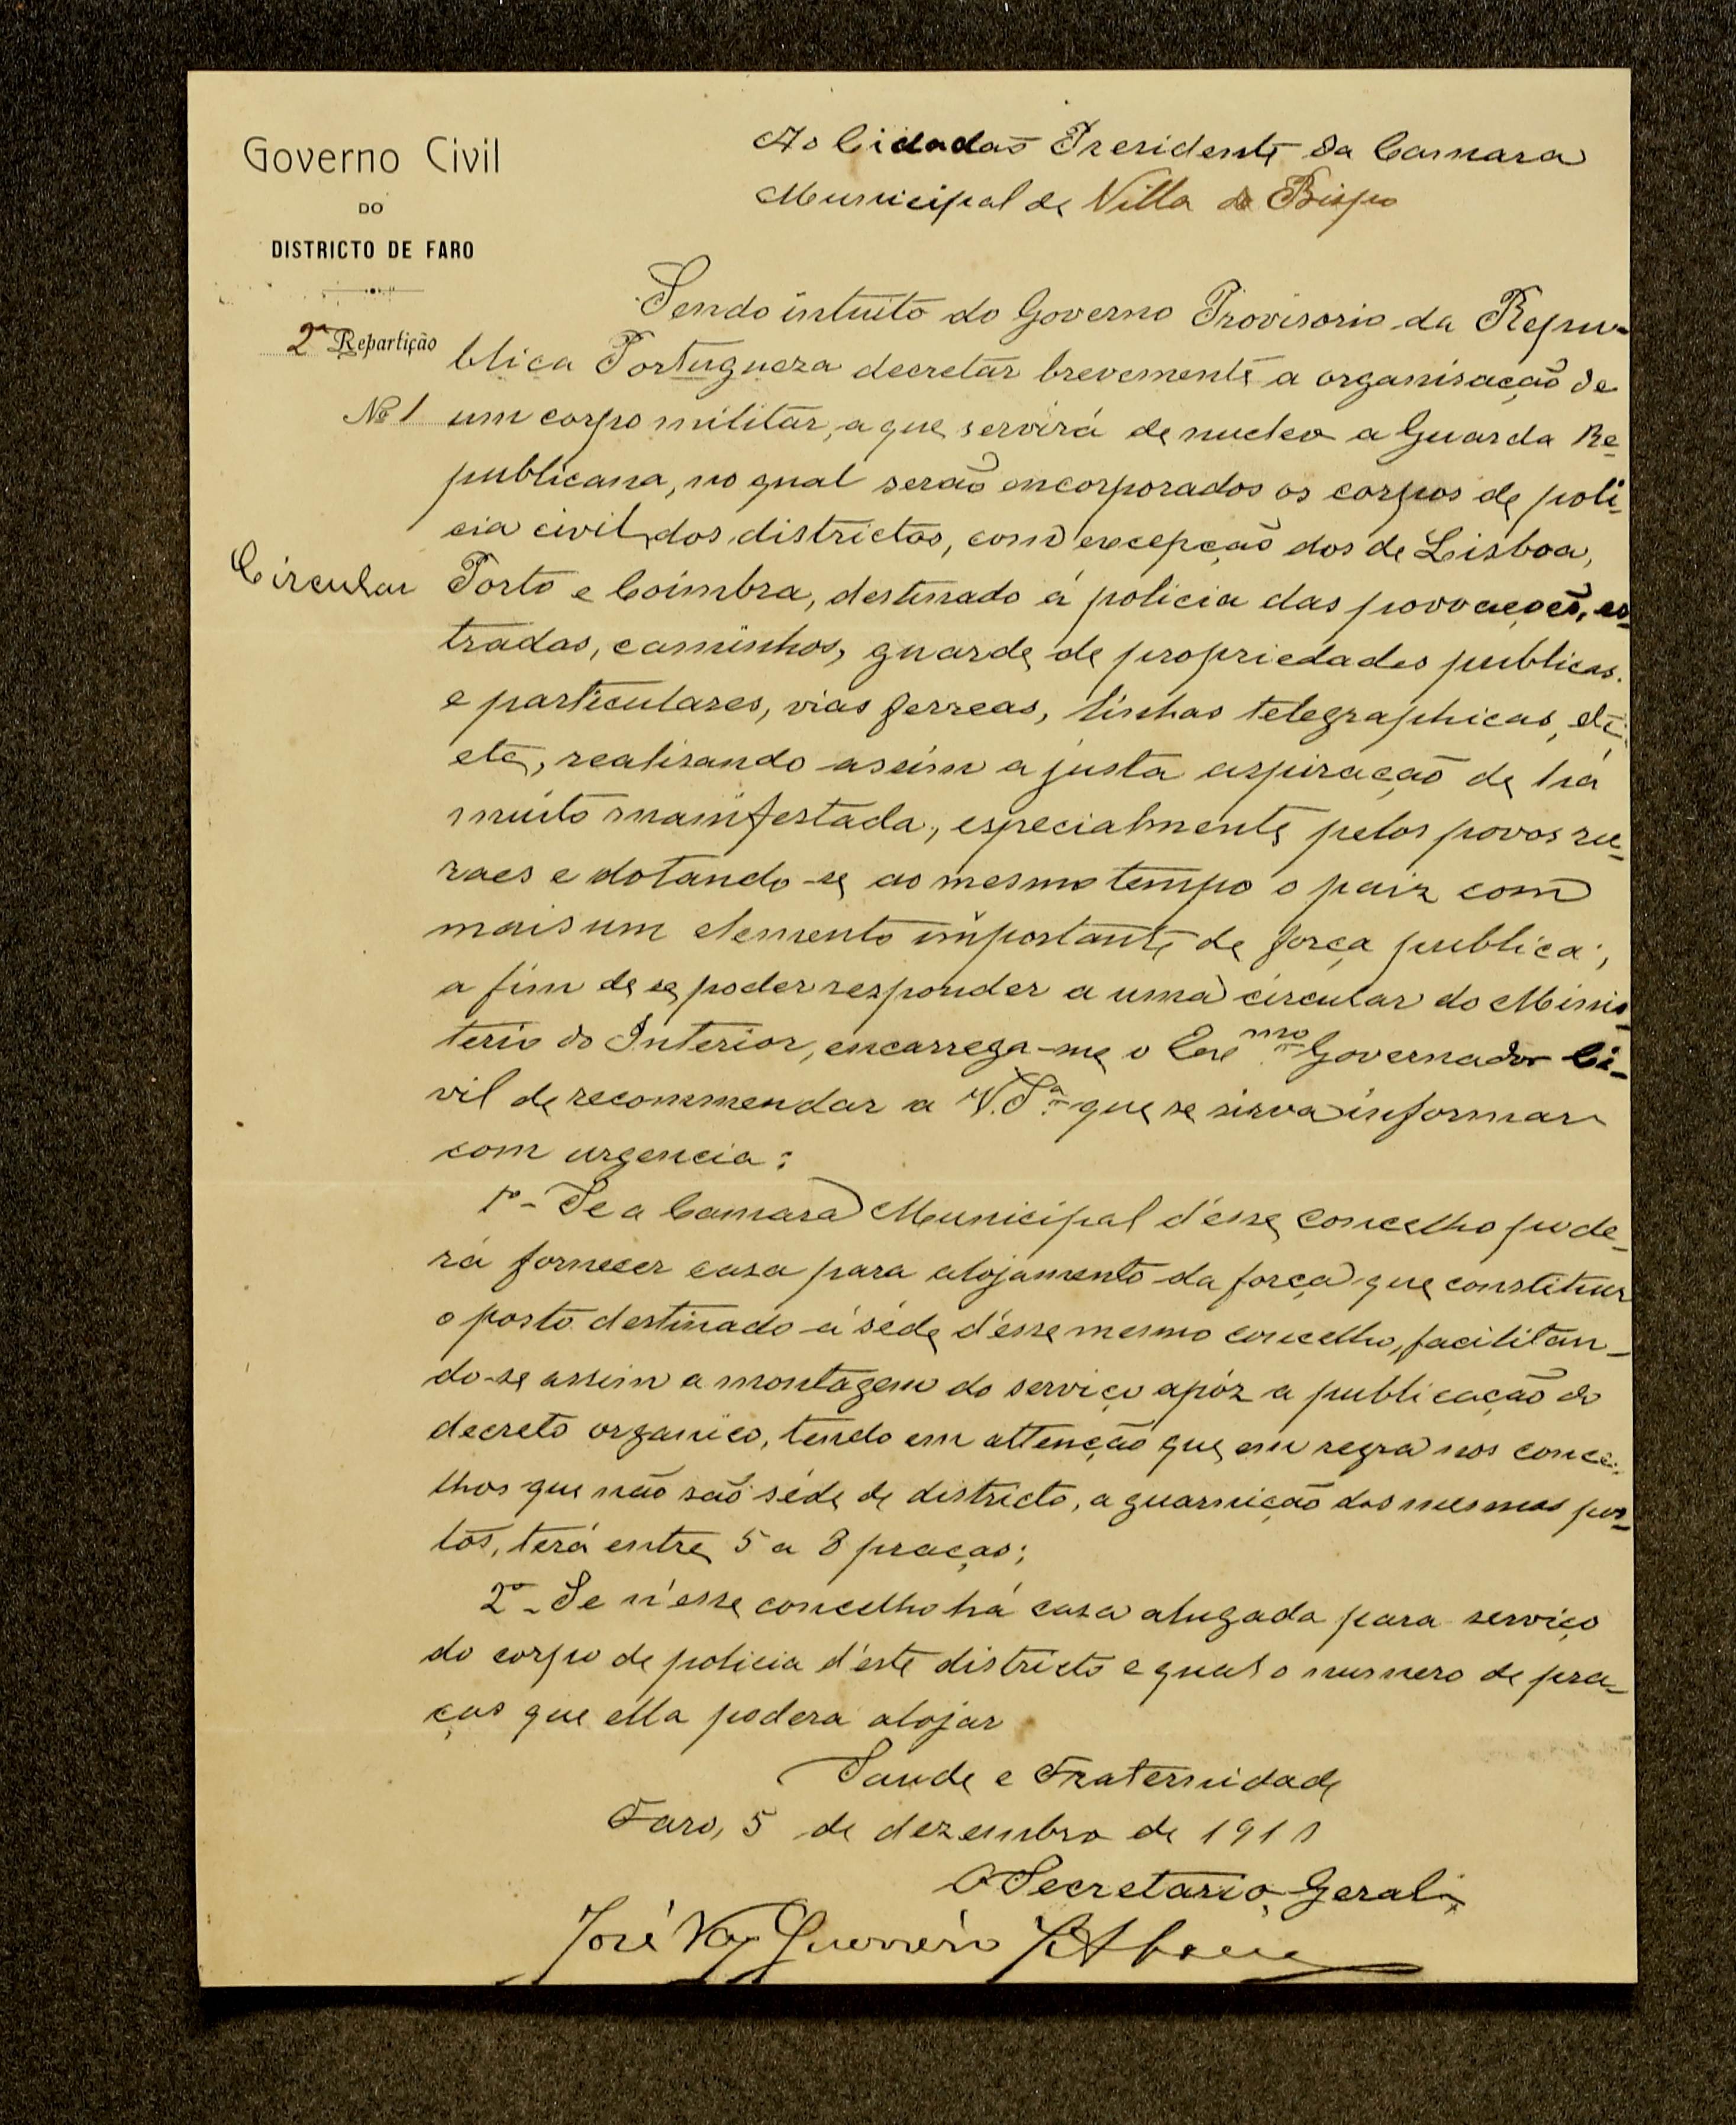 Governo Civil
DO
DISTRICTO DE FARO
2ª Repartição
Nº 1
Circular
Ao Cidadão Presidente da Camara
Municipal de Villa do Bispo
Sendo intuito do Governo Provisorio da Repu-
blica Portugueza decretar brevemente a organisação de
um corpo militar, a que servirá de nucleo a Guarda Re-
publicana, no qual serão encorporados os corpos de poli-
cia civil dos districtos, com excepção dos de Lisboa,
Porto e Coimbra, destinado á policia das povoações, es-
tradas, caminhos, guarda de propriedades publicas
e particulares, vias ferreas, linhas telegraphicas, etc.
etc, realisando assim a justa aspiração de há
muito manifestada, especialmente pelos povos ru-
raes e dotando-se ao mesmo tempo o paiz com
mais um elemento importante de força publica;
a fim de se poder responder a uma circular do Minis-
terio do Interior, encarrega-me o Exmo Governador Ci-
vil de recommendar a V. Sª que se sirva informar
com urgencia:
1º - Se a Camara Municipal d'esse concelho pode-
rá fornecer casa para alojamento da força que constituir
o posto destinado á séde d'esse mesmo concelho, facilitan-
do-se assim a montagem do serviço após a publicação do
decreto organico, tendo em attenção que em regra nos conce-
lhos que não são séde de districto, a guarnição dos mesmos pos-
tos, terá entre 5 a 8 praças;
2º - Se n'esse concelho há casa alugada para serviço
do corpo de policia d'este districto e qual o numero de pra-
ças que ella poderá alojar
Saude e Fraternidade
Faro, 5 de dezembro de 1910
O Secretario Geral,
José Vaz Guerreiro